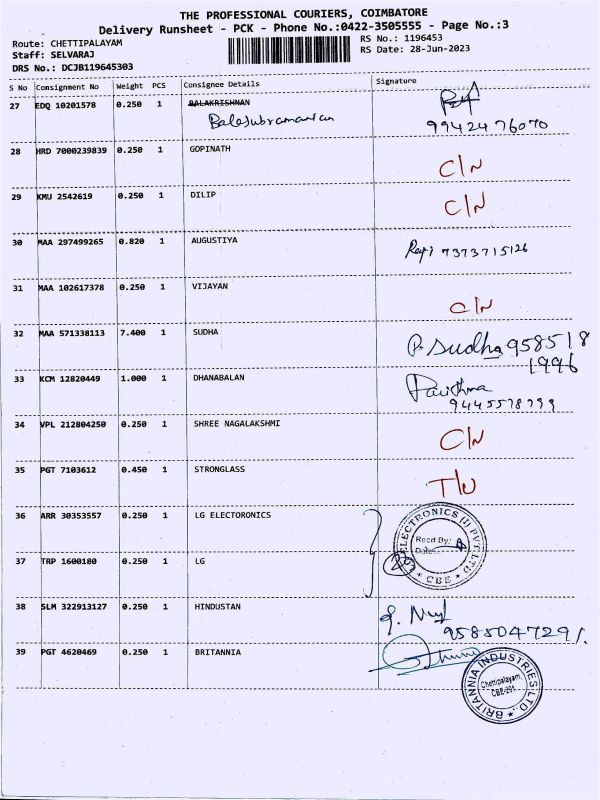 THE PROFESSIONAL COURIERS, COIMBATORE
Delivery Runsheet - PCK - Phone No.:0422-3505555 - Page No.:3
Route: CHETTIPALAYAM RS No.: 1196453
Staff: SELVARAJ RS Date: 28-Jun-2023
DRS No.: DCJB119645303
S No Consignment No Weight PCS Consignee Details Signature
27 EDQ 10201578 0.250 1 BALAKRISHNAN
Balasubramanian 99424 76070
28 HRD 7000239839 0.250 1 GOPINATH C/N
29 KMU 2542619 0.250 1 DILIP C/N
30 MAA 297499265 0.820 1 AUGUSTIYA 7373715126
31 MAA 102617378 0.250 1 VIJAYAN C/N
32 MAA 571338113 7.400 1 SUDHA P. Sudha 958518
1996
33 KCM 12820449 1.000 1 DHANABALAN Pavithma
9445578799
34 VPL 212804250 0.250 1 SHREE NAGALAKSHMI C/N
35 PGT 7103612 0.450 1 STRONGLASS T/U
36 ARR 30353557 0.250 1 LG ELECTORONICS ELECTRONICS (I) PVT LTD
Recd By:
Date:
CBE
37 TRP 1600180 0.250 1 LG
38 SLM 322913127 0.250 1 HINDUSTAN
9585047291
39 PGT 4620469 0.250 1 BRITANNIA
BRITANNIA INDUSTRIES LTD.,
Chettipalayam,
CBE-201